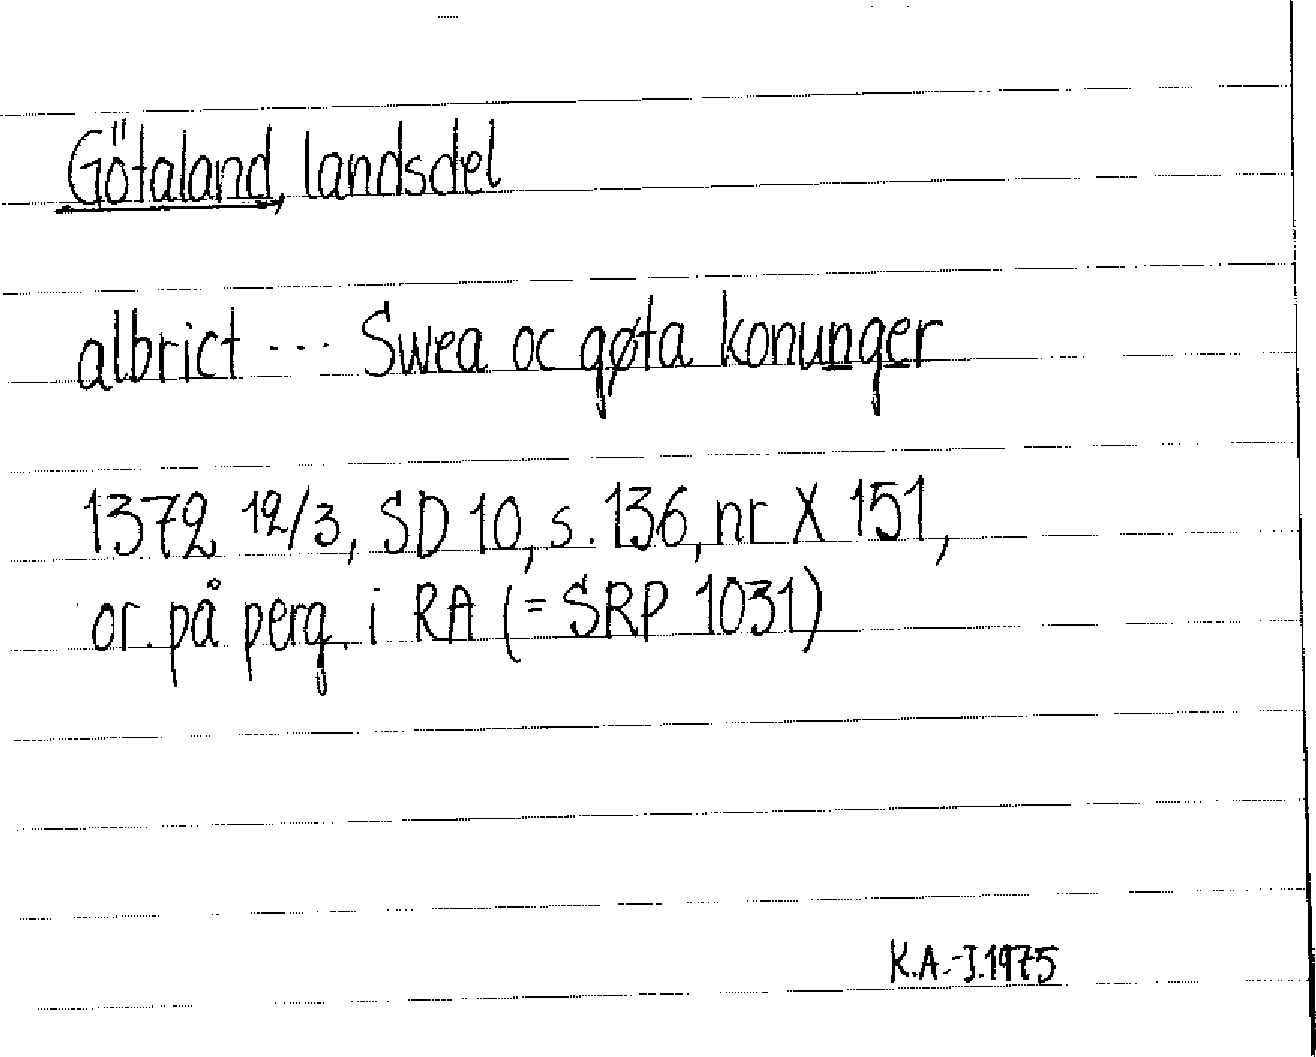 Götaland, landsdel
albrict --- Swea oc gøta konunger
1372 12/3, SD 10, s. 136, nr X 151,
or. på perg. i RA (= SRP 1031)
K.A.-J. 1975